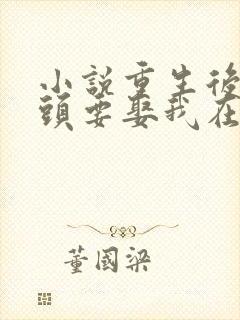 小說重生後
頭要娶我在
董國梁